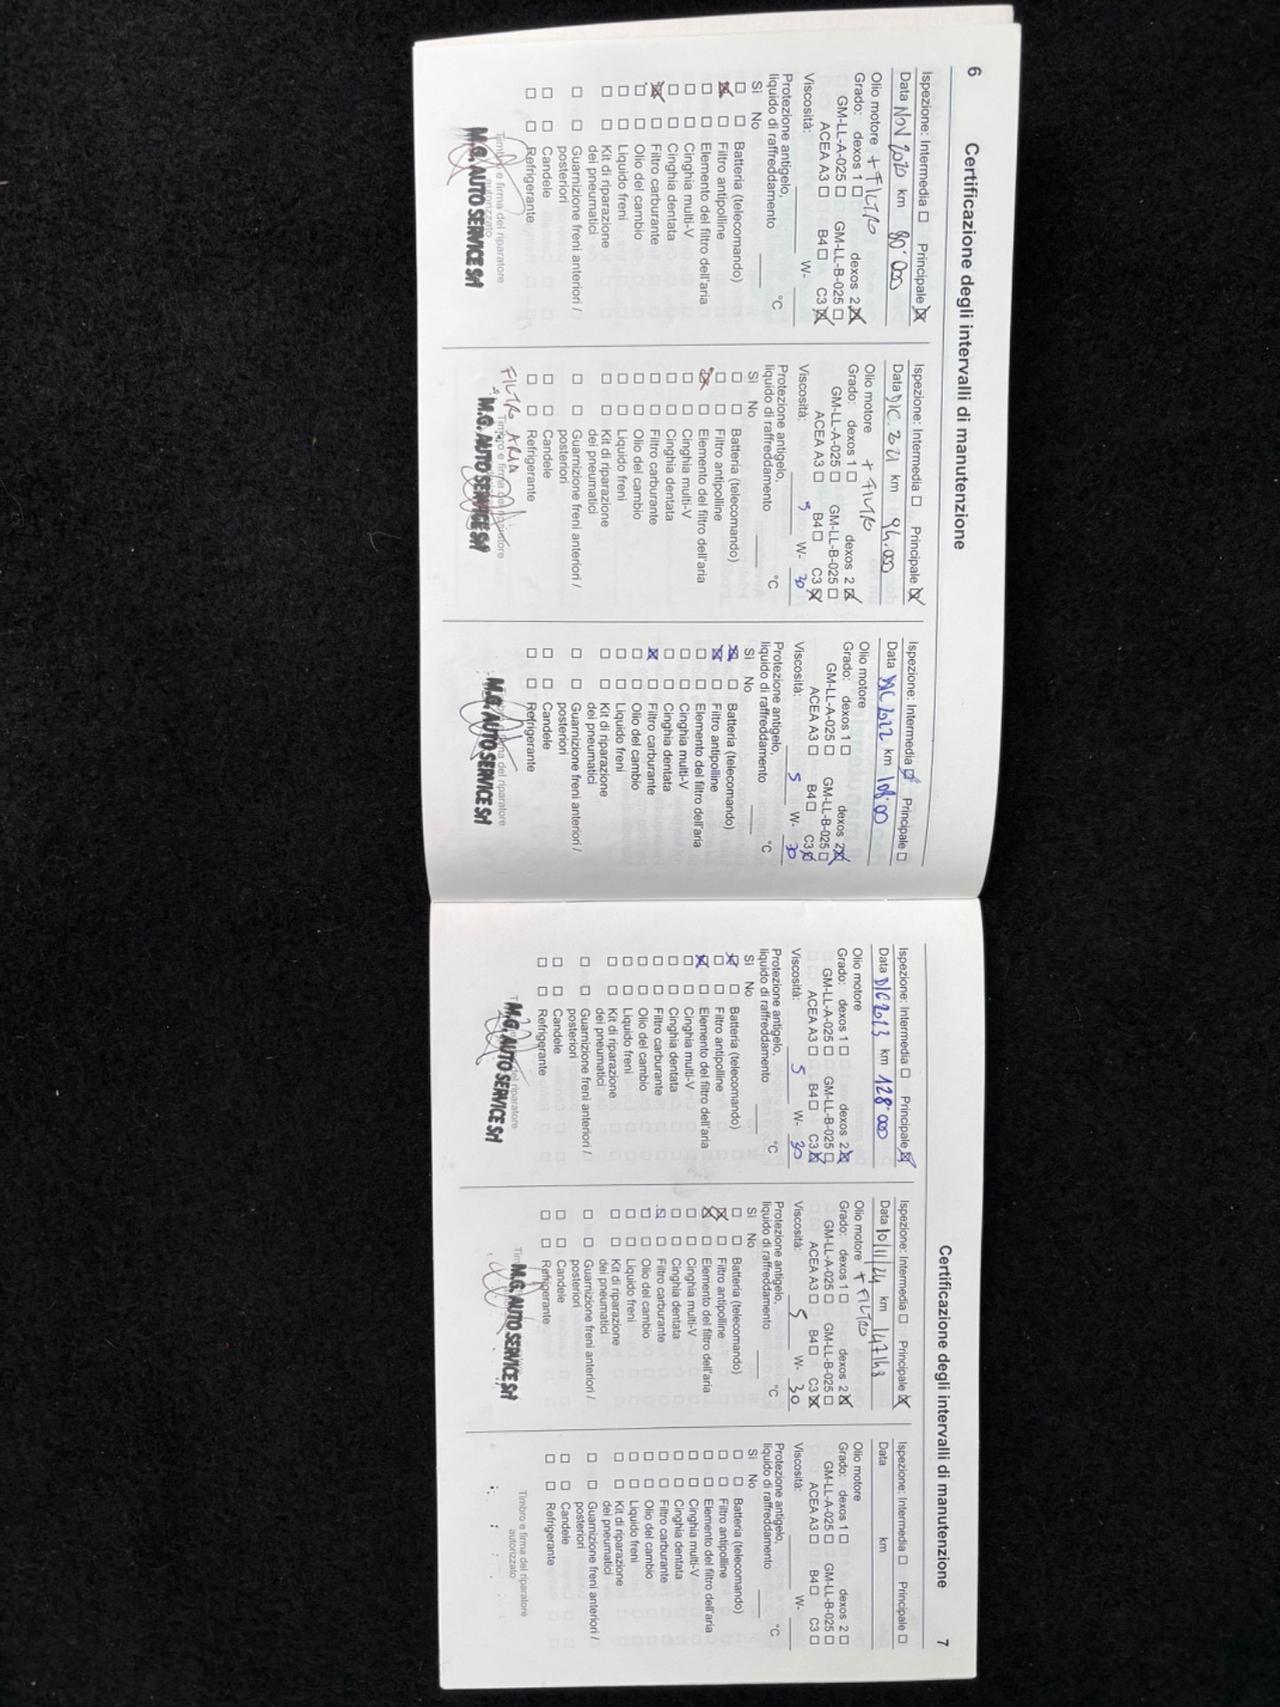 6
Certificazione degli intervalli di manutenzione
Ispezione: Intermedia ☐ Principale ☒
Data NOV 2020 km 80'000
Olio motore + FILTRO
Grado: dexos 1 ☐ dexos 2 ☒
GM-LL-A-025 ☐ GM-LL-B-025 ☐
ACEA A3 ☐ B4 ☐ C3 ☒
Viscosità: W-
Protezione antigelo,
liquido di raffreddamento °C
Sì No
☐ ☐ Batteria (telecomando)
☒ ☐ Filtro antipolline
☐ ☐ Elemento del filtro dell'aria
☐ ☐ Cinghia multi-V
☐ ☐ Cinghia dentata
☒ ☐ Filtro carburante
☐ ☐ Olio del cambio
☐ ☐ Liquido freni
☐ ☐ Kit di riparazione
dei pneumatici
☐ ☐ Guarnizione freni anteriori /
posteriori
☐ ☐ Candele
☐ ☐ Refrigerante
Timbro e firma del riparatore
autorizzato
M.G. AUTO SERVICE Srl
Ispezione: Intermedia ☐ Principale ☒
Data DIC. 2021 km 94.000
Olio motore + FILTRO
Grado: dexos 1 ☐ dexos 2 ☒
GM-LL-A-025 ☐ GM-LL-B-025 ☐
ACEA A3 ☐ B4 ☐ C3 ☒
Viscosità: 5 W- 30
Protezione antigelo,
liquido di raffreddamento °C
Sì No
☐ ☐ Batteria (telecomando)
☐ ☐ Filtro antipolline
☒ ☐ Elemento del filtro dell'aria
☐ ☐ Cinghia multi-V
☐ ☐ Cinghia dentata
☐ ☐ Filtro carburante
☐ ☐ Olio del cambio
☐ ☐ Liquido freni
☐ ☐ Kit di riparazione
dei pneumatici
☐ ☐ Guarnizione freni anteriori /
posteriori
☐ ☐ Candele
☐ ☐ Refrigerante
FILTRO ARIA
Timbro e firma del riparatore
M.G. AUTO SERVICE Srl
Ispezione: Intermedia ☒ Principale ☐
Data DIC 2022 km
Olio motore
Grado: dexos 1 ☐ dexos 2 ☒
GM-LL-A-025 ☐ GM-LL-B-025 ☐
ACEA A3 ☐ B4 ☐ C3 ☒
Viscosità: 5 W- 30
Protezione antigelo,
liquido di raffreddamento °C
Sì No
☒ ☐ Batteria (telecomando)
☒ ☐ Filtro antipolline
☐ ☐ Elemento del filtro dell'aria
☐ ☐ Cinghia multi-V
☐ ☐ Cinghia dentata
☒ ☐ Filtro carburante
☐ ☐ Olio del cambio
☐ ☐ Liquido freni
☐ ☐ Kit di riparazione
dei pneumatici
☐ ☐ Guarnizione freni anteriori /
posteriori
☐ ☐ Candele
☐ ☐ Refrigerante
firma del riparatore
M.G. AUTO SERVICE Srl
Certificazione degli intervalli di manutenzione
7
Ispezione: Intermedia ☐ Principale ☒
Data DIC 2023 km 128'000
Olio motore
Grado: dexos 1 ☐ dexos 2 ☒
GM-LL-A-025 ☐ GM-LL-B-025 ☐
ACEA A3 ☐ B4 ☐ C3 ☒
Viscosità: 5 W- 30
Protezione antigelo,
liquido di raffreddamento °C
Sì No
☒ ☐ Batteria (telecomando)
☐ ☐ Filtro antipolline
☒ ☐ Elemento del filtro dell'aria
☐ ☐ Cinghia multi-V
☐ ☐ Cinghia dentata
☐ ☐ Filtro carburante
☐ ☐ Olio del cambio
☐ ☐ Liquido freni
☐ ☐ Kit di riparazione
dei pneumatici
☐ ☐ Guarnizione freni anteriori /
posteriori
☐ ☐ Candele
☐ ☐ Refrigerante
del riparatore
M.G. AUTO SERVICE Srl
Ispezione: Intermedia ☐ Principale ☒
Data 10/11/24 km 147148
Olio motore + FILTRO
Grado: dexos 1 ☐ dexos 2 ☒
GM-LL-A-025 ☐ GM-LL-B-025 ☐
ACEA A3 ☐ B4 ☐ C3 ☒
Viscosità: 5 W- 30
Protezione antigelo,
liquido di raffreddamento °C
Sì No
☐ ☐ Batteria (telecomando)
☒ ☐ Filtro antipolline
☒ ☐ Elemento del filtro dell'aria
☐ ☐ Cinghia multi-V
☐ ☐ Cinghia dentata
☐ ☐ Filtro carburante
☐ ☐ Olio del cambio
☐ ☐ Liquido freni
☐ ☐ Kit di riparazione
dei pneumatici
☐ ☐ Guarnizione freni anteriori /
posteriori
☐ ☐ Candele
☐ ☐ Refrigerante
M.G. AUTO SERVICE Srl
Ispezione: Intermedia ☐ Principale ☐
Data km
Olio motore
Grado: dexos 1 ☐ dexos 2 ☐
GM-LL-A-025 ☐ GM-LL-B-025 ☐
ACEA A3 ☐ B4 ☐ C3 ☐
Viscosità: W-
Protezione antigelo,
liquido di raffreddamento °C
Sì No
☐ ☐ Batteria (telecomando)
☐ ☐ Filtro antipolline
☐ ☐ Elemento del filtro dell'aria
☐ ☐ Cinghia multi-V
☐ ☐ Cinghia dentata
☐ ☐ Filtro carburante
☐ ☐ Olio del cambio
☐ ☐ Liquido freni
☐ ☐ Kit di riparazione
dei pneumatici
☐ ☐ Guarnizione freni anteriori /
posteriori
☐ ☐ Candele
☐ ☐ Refrigerante
Timbro e firma del riparatore
autorizzato